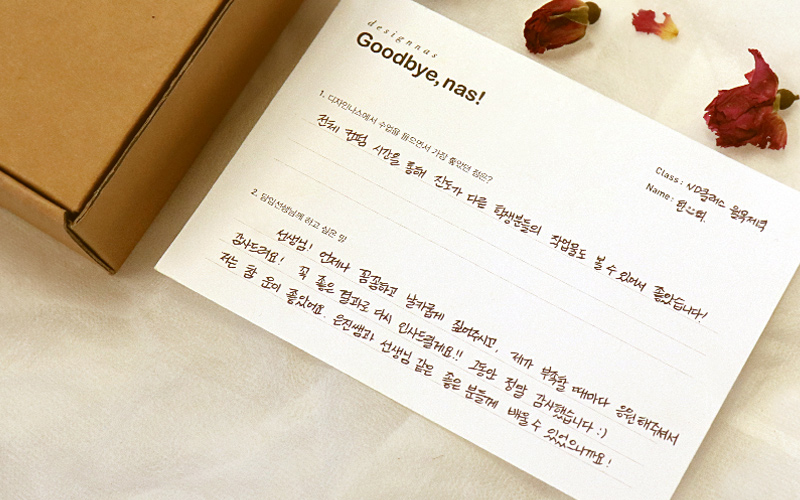 designnas
Goodbye, nas!
Class : ND클래스 월목저녁
Name :
1. 디자인나스에서 수업을 들으면서 가장 좋았던 점은?
전체 컨펌 시간을 통해 진도가 다른 학생분들의 작업물도 볼 수 있어서 좋았습니다!
2. 담임선생님께 하고 싶은 말
선생님! 언제나 꼼꼼하고 날카롭게 짚어주시고, 제가 부족할 때마다 응원해주셔서
감사드려요! 꼭 좋은 결과로 다시 인사드릴게요!! 그동안 정말 감사했습니다 :)
저는 참 운이 좋았어요. 은진쌤과 선생님 같은 좋은 분들께 배울 수 있었으니까요!